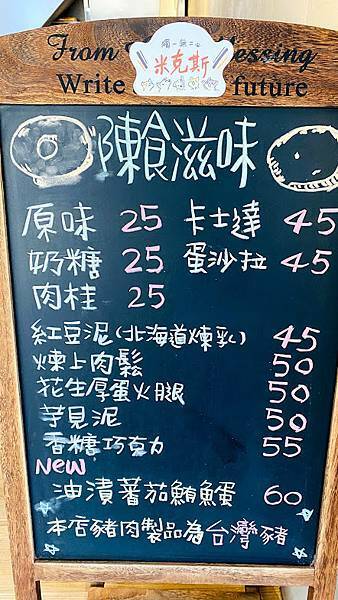 From lessing
Write future
獨一無二の
米克斯
陳食滋味
原味 25 卡士達 45
奶糖 25 蛋沙拉 45
肉桂 25
紅豆泥(北海道煉乳) 45
煉上肉鬆 50
花生厚蛋火腿 50
芋見泥 50
香糖巧克力 55
NEW
油漬蕃茄鮪鱺 60
本店豬肉製品為台灣豬